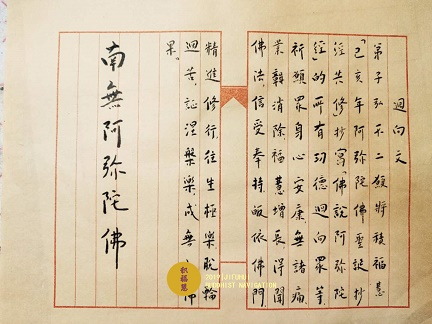 迴向文
弟子弘不二願將積福慧
「己亥年阿弥陀佛聖誕抄
经共修」抄寫「佛説阿弥陀
经」的所有功德迴向眾等,
祈願眾身心安康,無諸病
業難消除,福慧增長,得聞
佛法,信受奉持,皈依佛門,
精進修行,往生極樂,脱輪
迴苦,証涅槃樂,成無佛
果。
南無阿弥陀佛
积福慧
2019 JIFUHUI
BUDDHIST NAVIGATION